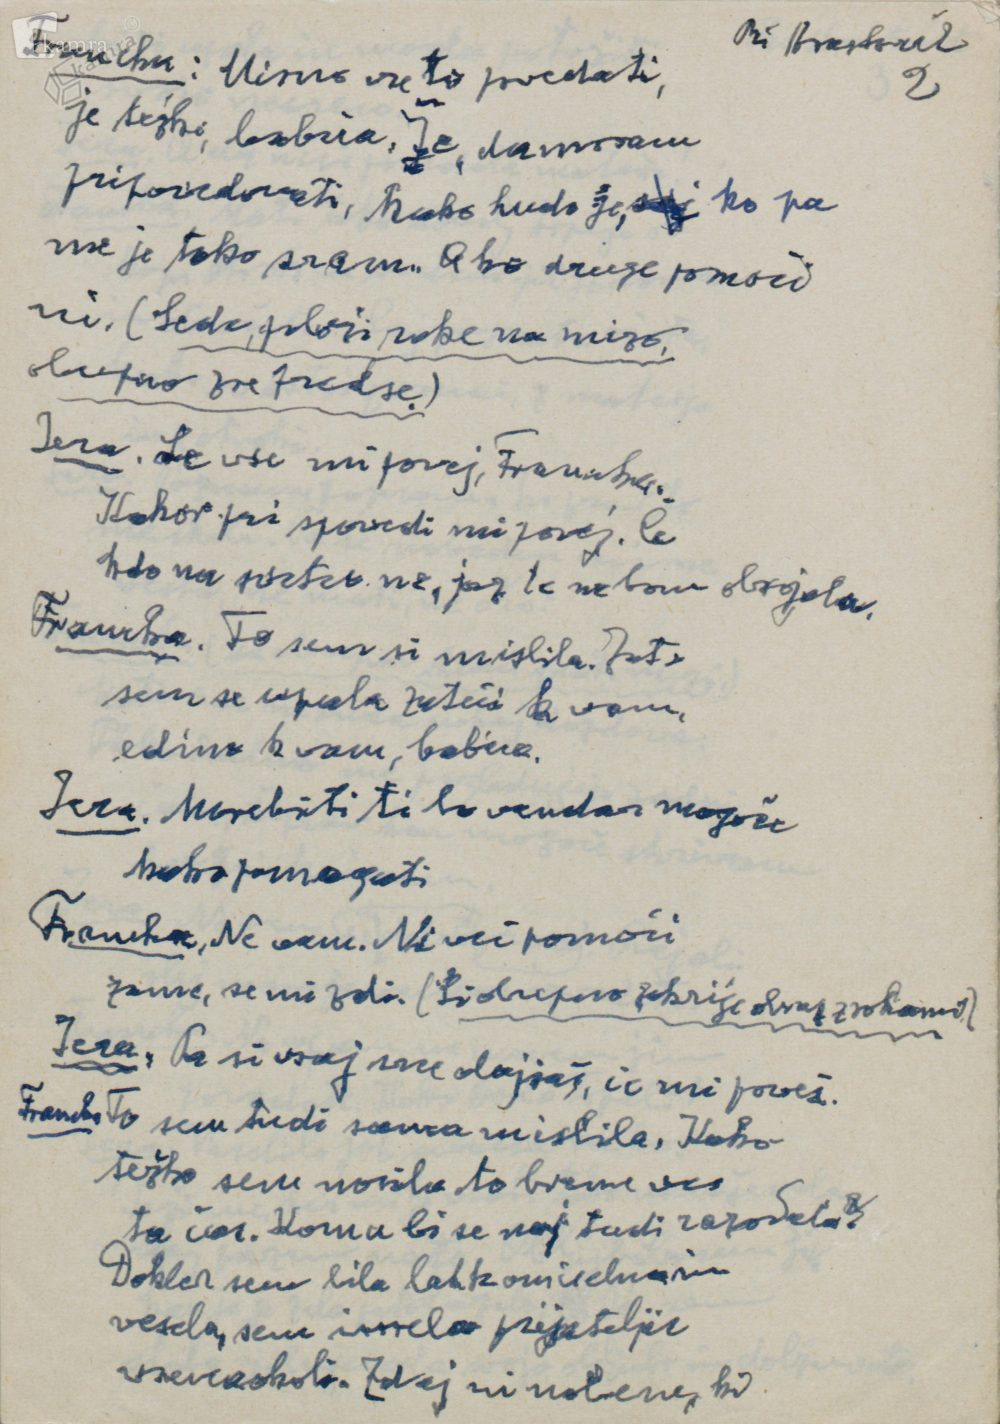 Pri Hrastovih
2
Francka: Nismo vse to povedati,
je težko, babica. Že, da moram
pripovedovati, kako hudo je, ko pa
me je tako sram. Ako druge pomoči
ni. (Sede, položi roke na mizo,
obupno zre predse.)
Jera. Le vse mi povej, Francka.
Kakor pri spovedi mi povej. Če
kdo na svetu ne, jaz te ne bom obsojala.
Francka. To sem si mislila. Zato
sem se upala zateči k vam,
edino k vam, babica.
Jera. Morebiti ti bo vendar mogoče
kako pomagati
Francka, Ne vem. Ni več pomoči
zame, se mi zdi. (Si obupno zakrije obraz z rokami)
Jera. Pa si vsaj srce olajšaš, če mi poveš.
Francka To sem tudi sama mislila. Kako
težko sem nosila to breme ves
ta čas. Komu bi se naj tudi razodela?
Dokler sem bila lahkomiselna in
vesela, sem imela prijateljic
vsenaokoli. Zdaj ni nobene, ki